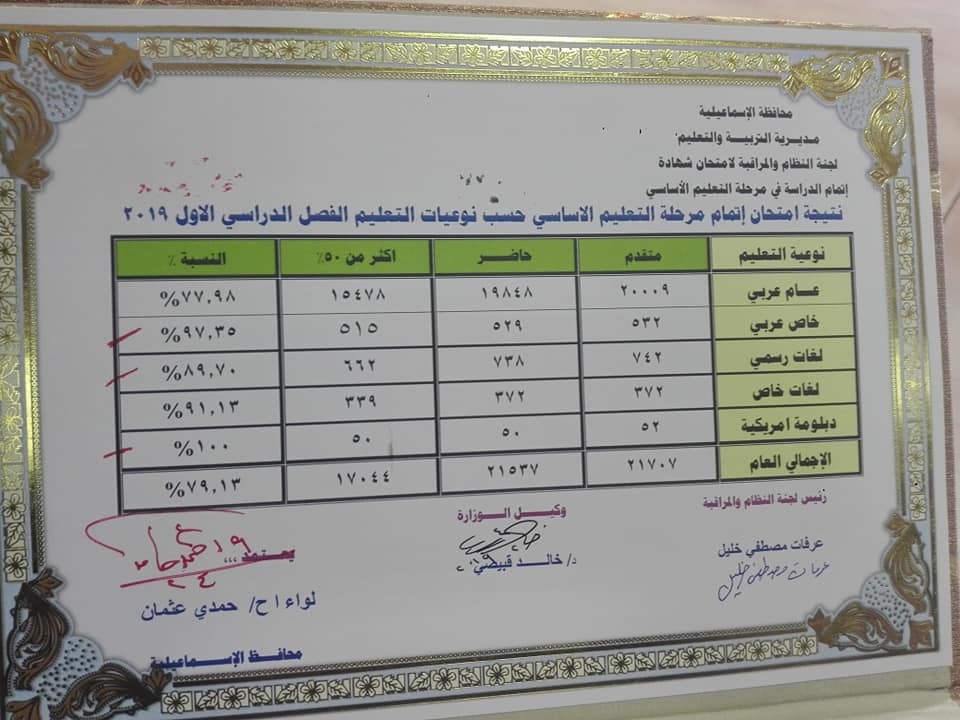 محافظة الإسماعيلية
مديرية التربية والتعليم
لجنة النظام والمراقبة لامتحان شهادة
إتمام الدراسة في مرحلة التعليم الأساسي
نتيجة امتحان إتمام مرحلة التعليم الاساسي حسب نوعيات التعليم الفصل الدراسي الاول ٢٠١٩
نوعية التعليم متقدم حاضر اكثر من ٥٠٪ النسبة ٪
عام عربي ٢٠٠٠٩ ١٩٨٤٨ ١٥٤٧٨ ٧٧,٩٨%
خاص عربي ٥٣٢ ٥٢٩ ٥١٥ ٩٧,٣٥%
لغات رسمي ٧٤٢ ٧٣٨ ٦٦٢ ٨٩,٧٠%
لغات خاص ٣٧٢ ٣٧٢ ٣٣٩ ٩١,١٣%
دبلومة امريكية ٥٢ ٥٠ ٥٠ ١٠٠%
الإجمالي العام ٢١٧٠٧ ٢١٥٣٧ ١٧٠٤٤ ٧٩,١٣%
رئيس لجنة النظام والمراقبة
عرفات مصطفي خليل
عرفات مصطفى خليل
وكيل الوزارة
د/ خالد قبيصي
يعتمد ,,,
لواء ا ح/ حمدي عثمان
محافظ الإسماعيلية